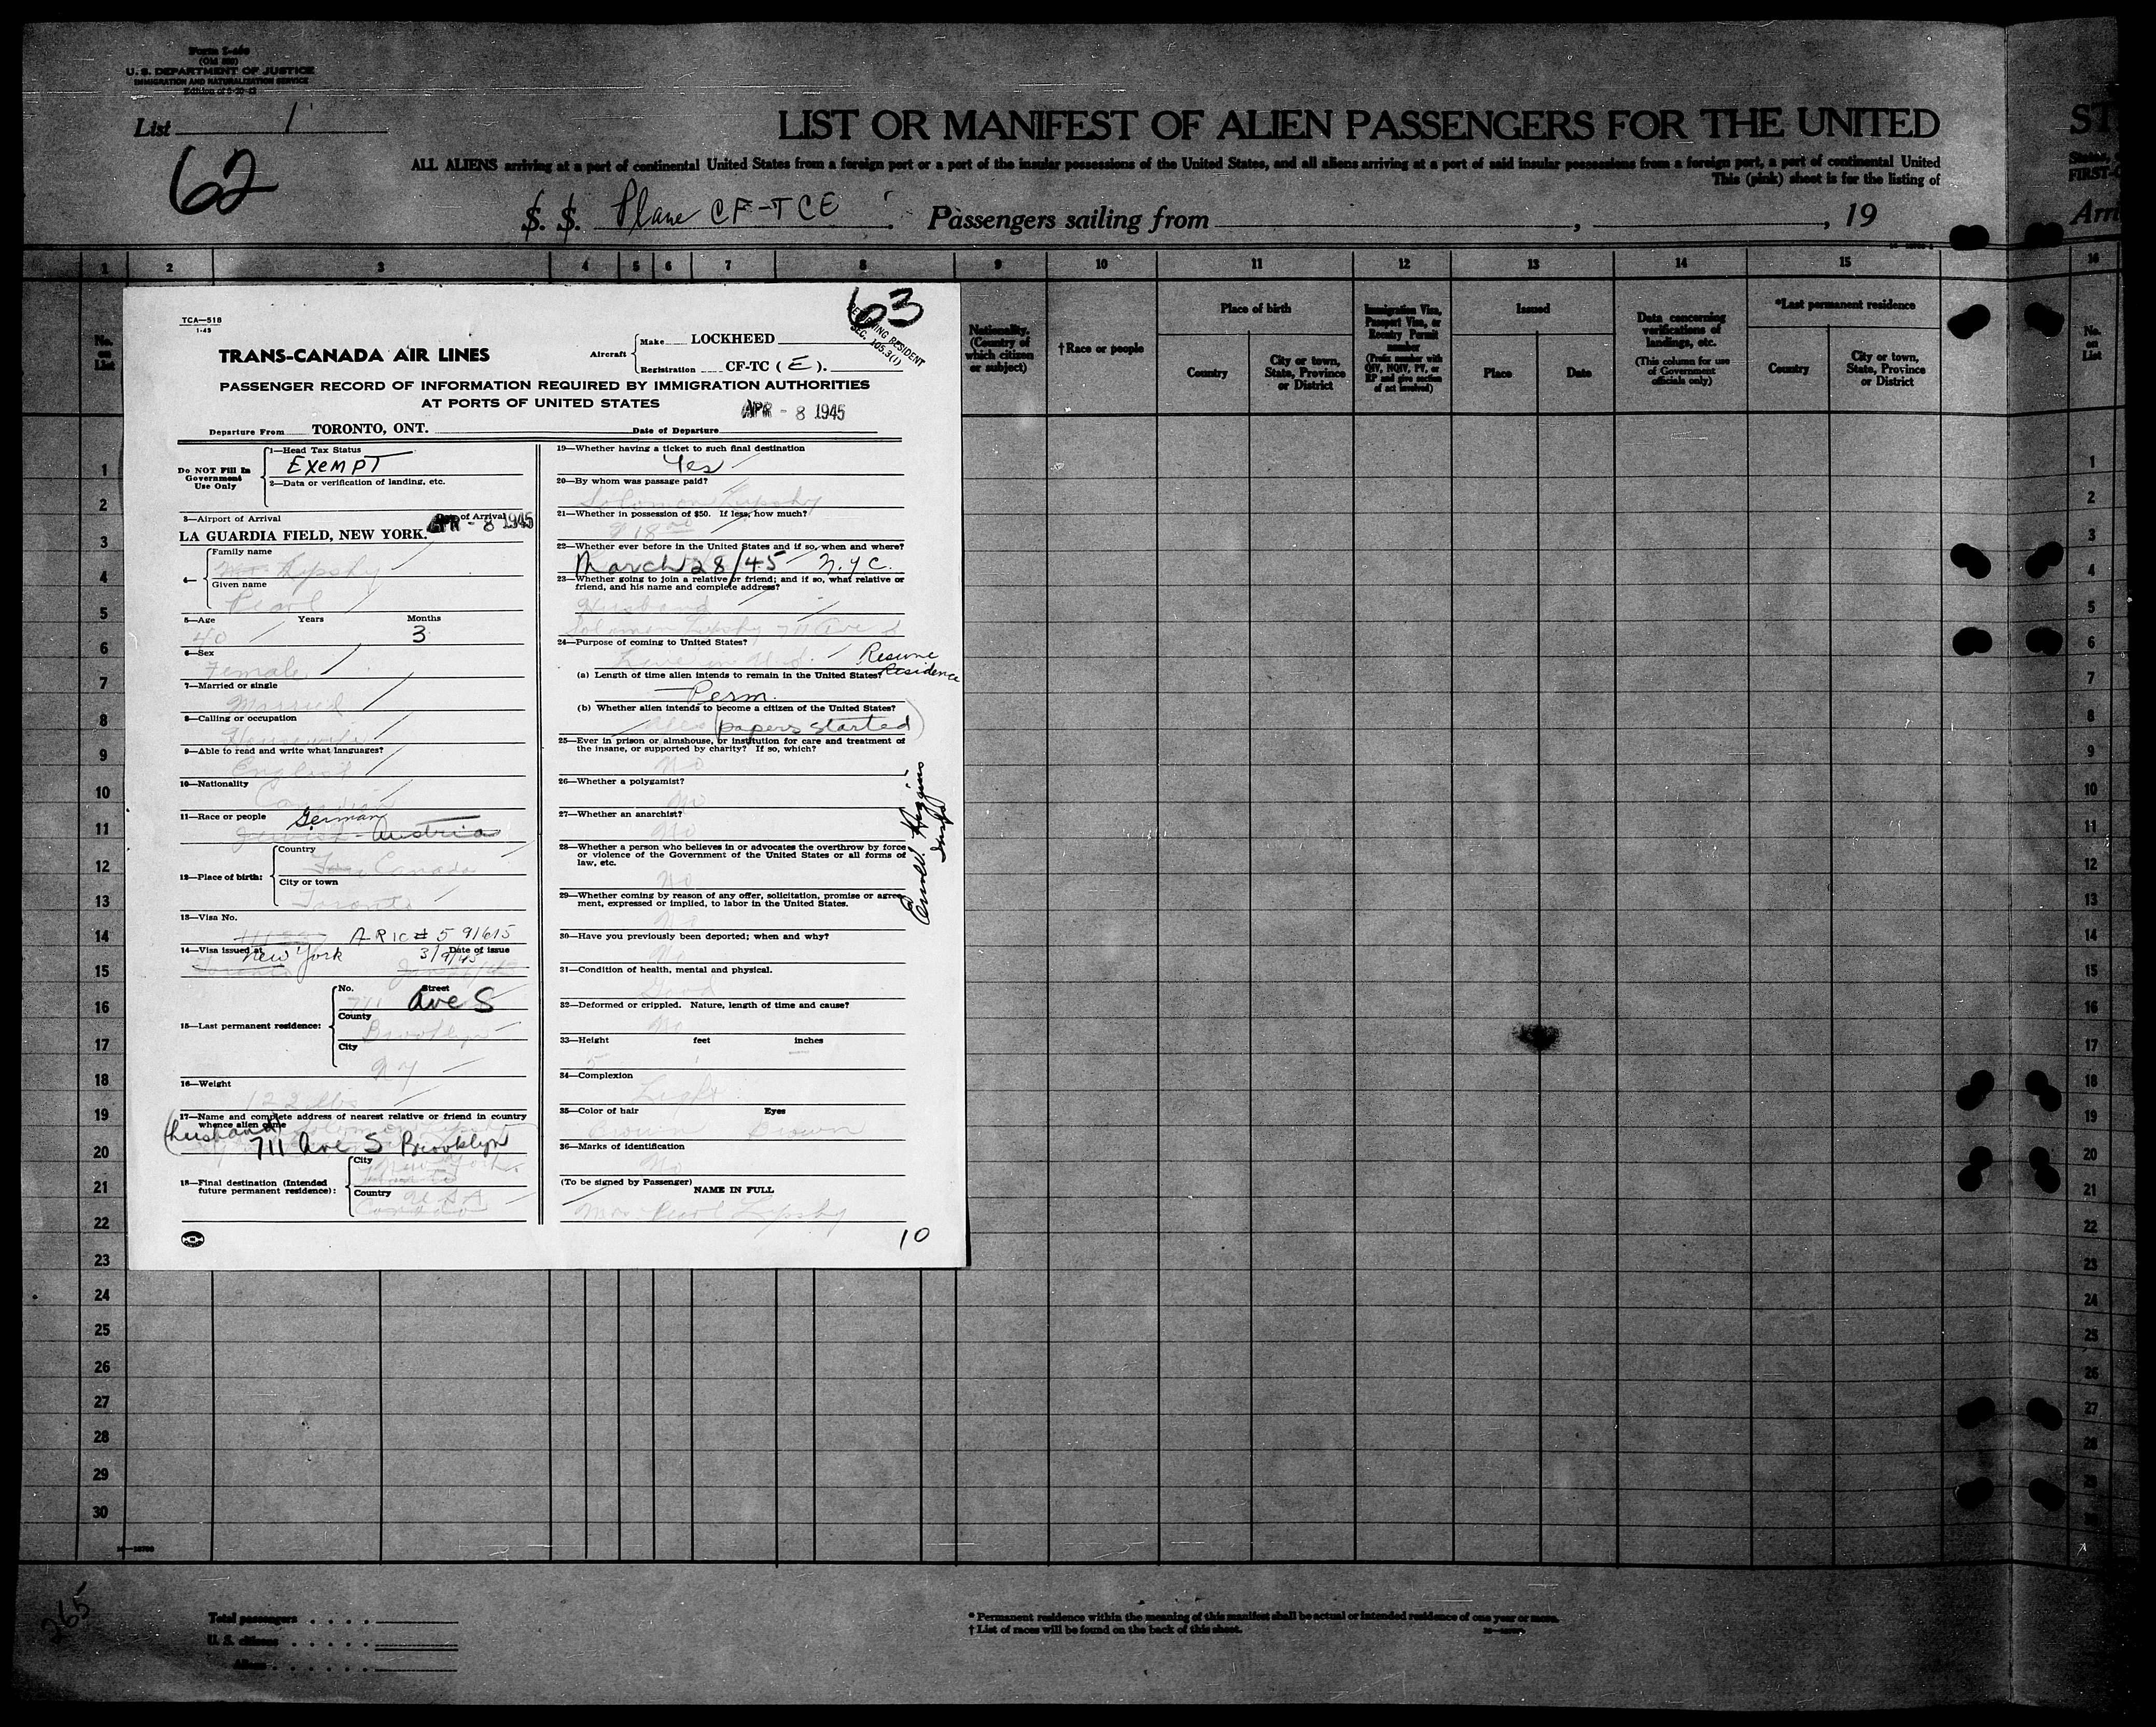 Form I-460
(Old 500)
U. S. DEPARTMENT OF JUSTICE
IMMIGRATION AND NATURALIZATION SERVICE
List 1
62
LIST OR MANIFEST OF ALIEN PASSENGERS FOR THE UNITED
ST
ALL ALIENS arriving at a port of continental United States from a foreign port or a port of the insular possessions of the United States, and all aliens arriving at a port of said insular possessions from a foreign port, a port of continental United
This (pink) sheet is for the listing of
FIRST-C
S. S. Plane CF-TCE Passengers sailing from , , 19
Arri
1 2 3 4 5 6 7 8 9 10 11 12 13 14 15 16
No. on List
Nationality. (Country of which citizen or subject)
†Race or people
Place of birth
Country
City or town, State, Province or District
Immigration Visa, Passport Visa, or Reentry Permit number
(Prefix number with QIV, NQIV, PV, or RP and give section of act involved)
Issued
Place
Date
Data concerning verifications of landings, etc.
(This column for use of Government officials only)
*Last permanent residence
Country
City or town, State, Province or District
No. on List
63
TCA—518
1-45
RETURNING RESIDENT
SEC. 105.3(1)
TRANS-CANADA AIR LINES
Aircraft
Make LOCKHEED
Registration CF-TC (E).
PASSENGER RECORD OF INFORMATION REQUIRED BY IMMIGRATION AUTHORITIES
AT PORTS OF UNITED STATES
APR - 8 1945
Departure From TORONTO, ONT. Date of Departure
Do NOT Fill In
Government
Use Only
1—Head Tax Status
Exempt
2—Data or verification of landing, etc.
3—Airport of Arrival
Date of Arrival
LA GUARDIA FIELD, NEW YORK. APR - 8 1945
4— Family name
Mrs. Lipshy
Given name
Pearl
5—Age Years Months
40 3
6—Sex
Female
7—Married or single
Married
8—Calling or occupation
Housewife
9—Able to read and write what languages?
English
10—Nationality
Canadian
11—Race or people German
Austria
12—Place of birth:
Country
Canada
City or town
Toronto
13—Visa No.
ARIC# 591615
14—Visa issued at Date of issue
New York 3/9/45
15—Last permanent residence:
No. Street
711 Ave S
County
Brooklyn
City
N Y
16—Weight
122 lbs
17—Name and complete address of nearest relative or friend in country
whence alien came
(husband)
711 Ave S Brooklyn
18—Final destination (Intended
future permanent residence):
City
New York
Country
U.S.A.
19—Whether having a ticket to such final destination
Yes
20—By whom was passage paid?
Solomon Lipshy
21—Whether in possession of $50. If less, how much?
$18.00
22—Whether ever before in the United States and if so, when and where?
March 28/45 N.Y.C.
23—Whether going to join a relative or friend; and if so, what relative or
friend, and his name and complete address?
Husband
Solomon Lipshy 711 Ave S
24—Purpose of coming to United States?
Live in U.S. Resume
Residence
(a) Length of time alien intends to remain in the United States?
Perm.
(b) Whether alien intends to become a citizen of the United States?
Yes (papers started)
25—Ever in prison or almshouse, or institution for care and treatment of
the insane, or supported by charity? If so, which?
No
26—Whether a polygamist?
No
27—Whether an anarchist?
No
28—Whether a person who believes in or advocates the overthrow by force
or violence of the Government of the United States or all forms of
law, etc.
No
29—Whether coming by reason of any offer, solicitation, promise or agree-
ment, expressed or implied, to labor in the United States.
No
30—Have you previously been deported; when and why?
No
31—Condition of health, mental and physical.
Good
32—Deformed or crippled. Nature, length of time and cause?
No
33—Height feet inches
5
34—Complexion
Light
35—Color of hair Eyes
Brown Brown
36—Marks of identification
No
(To be signed by Passenger)
NAME IN FULL
Mrs. Pearl Lipshy
10
1
2
3
4
5
6
7
8
9
10
11
12
13
14
15
16
17
18
19
20
21
22
23
24
25
26
27
28
29
30
265
Total passengers
U. S. citizens
Aliens
* Permanent residence within the meaning of this manifest shall be actual or intended residence of one year or more.
† List of races will be found on the back of this sheet.